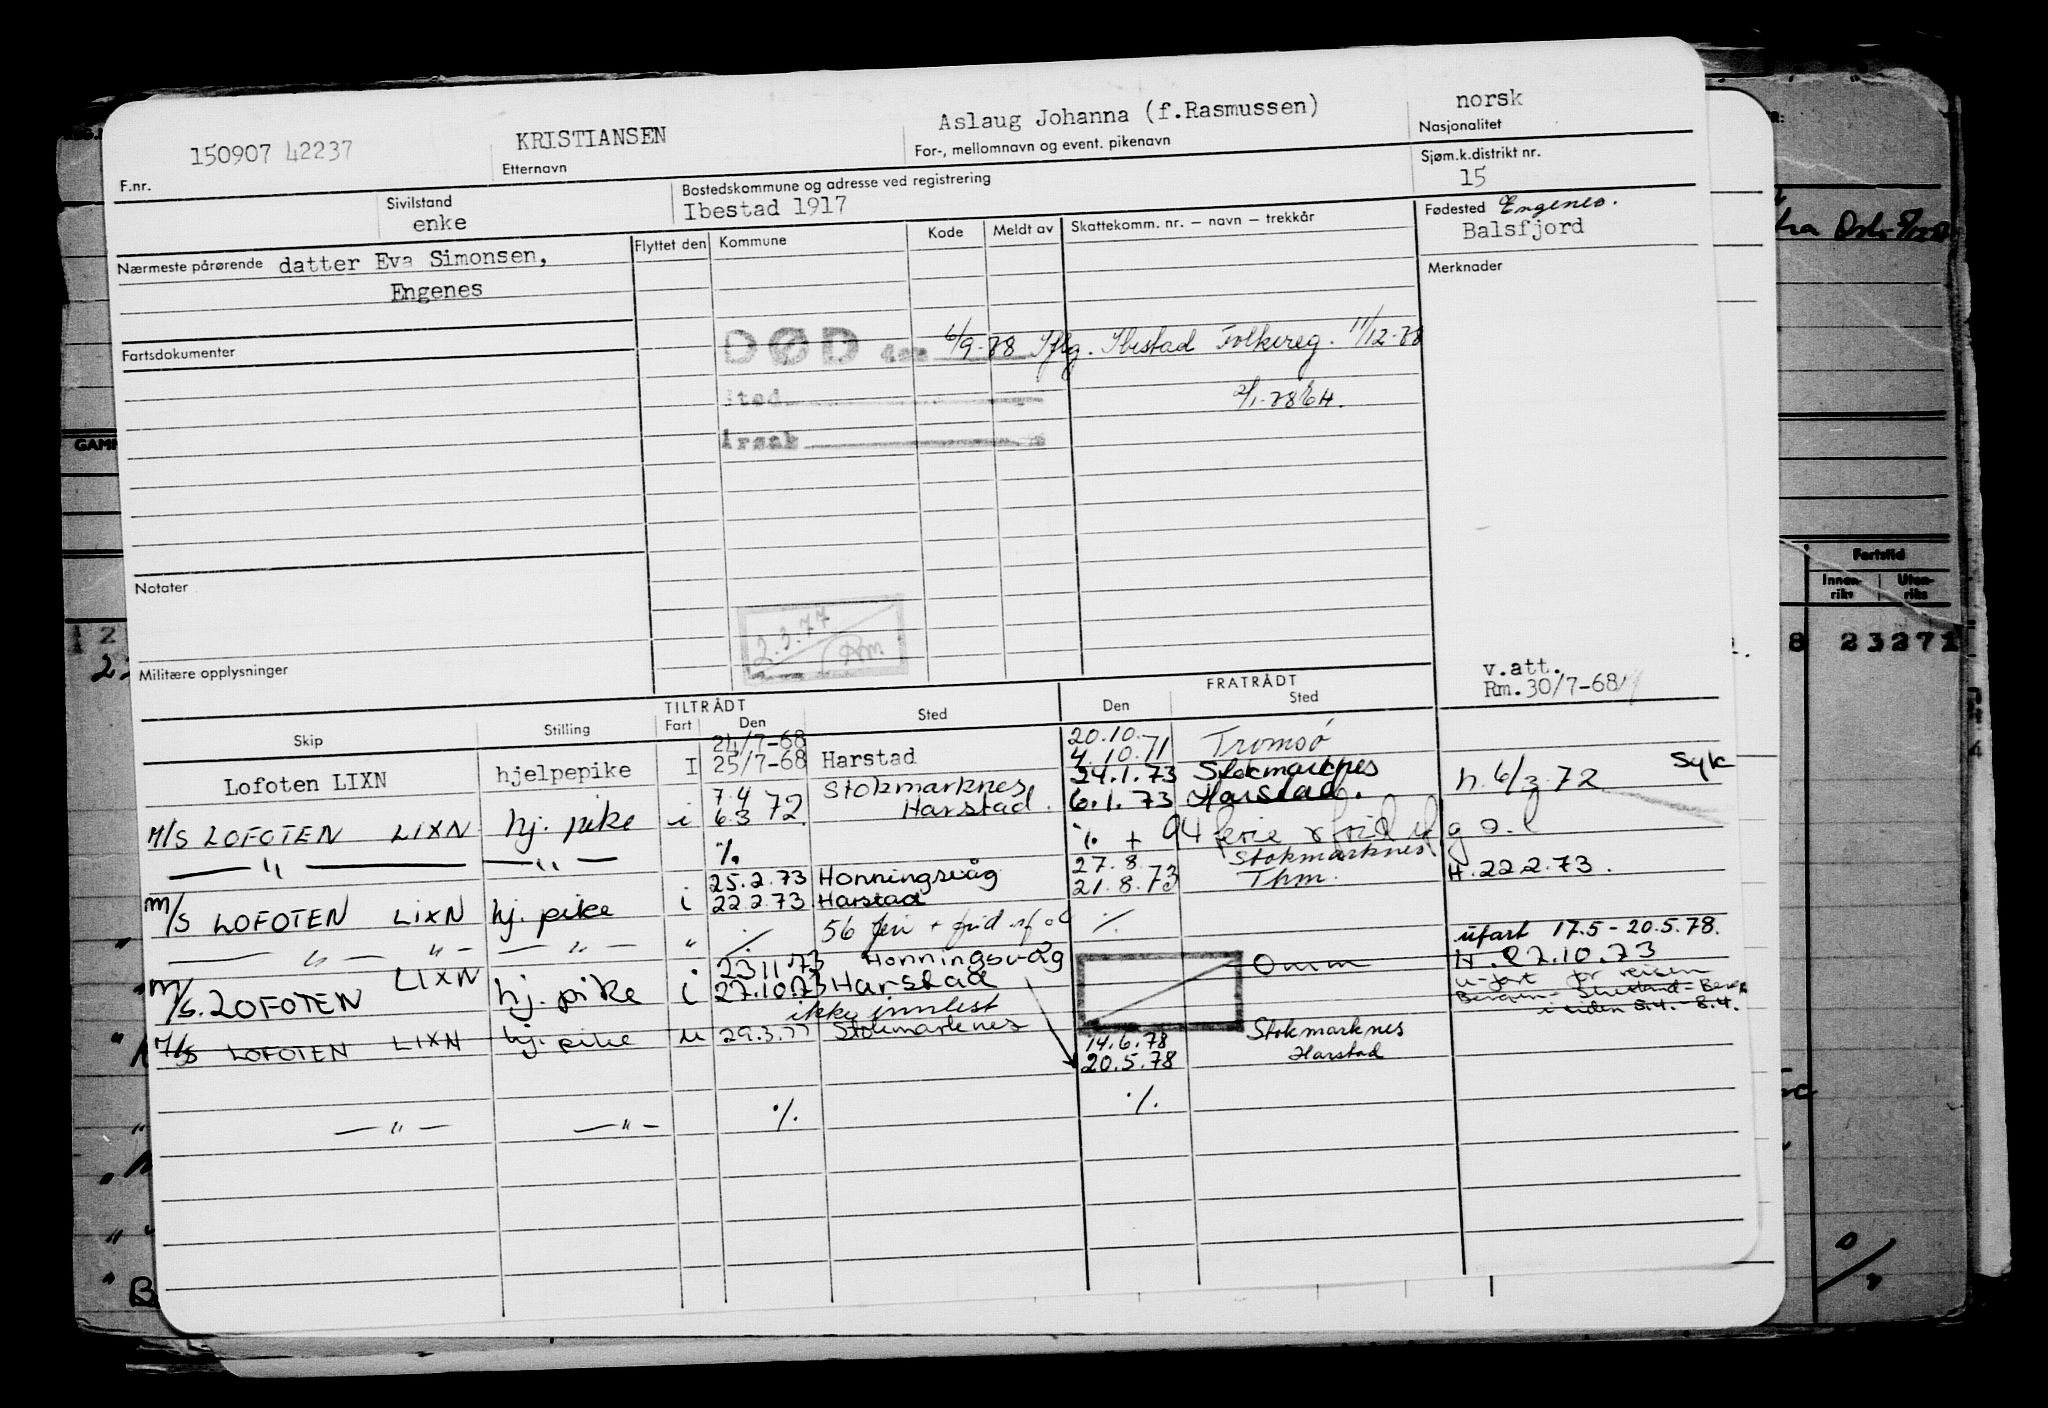 150907 42237 KRISTIANSEN Aslaug Johanna (f.Rasmussen) norsk
F.nr. Etternavn For-, mellomnavn og event. pikenavn Nasjonalitet
Sivilstand Bostedskommune og adresse ved registrering Sjøm.k.distrikt nr.
enke Ibestad 1917 15
Nærmeste pårørende datter Eva Simonsen, Flyttet den Kommune Kode Meldt av Skattekomm. nr. – navn – trekkår Fødested Engenes.
Engenes Balsfjord
Merknader
Fartsdokumenter
DØD den 6/9-78 Iflg. Ibestad Folkereg. 11/12-78
Sted
Årsak
Notater
2.3.77
Rm.
Militære opplysninger
v.att.
Rm.30/7-68
TILTRÅDT FRATRÅDT
Skip Stilling Fart Den Sted Den Sted
24/7-68 20.10.
Lofoten LIXN hjelpepike I 25/7-68 Harstad 4.10.71 Tromsø
7.4 Stokmarknes 24.1.73 Stokmarknes Syk
M/S LOFOTEN LIXN hj. pike i 6.3 72 Harstad. 6.1.73 Harstad. h. 6/3 72
— " — — " — % % + 94 ferie
25.2.73 Honningsvåg 27.8. Stokmarknes
M/S LOFOTEN LIXN hj. pike i 22.2.73 Harstad 21.8.73 Thm. H.22.2.73.
— " — " — — " — " % 56 %
ufart 17.5-20.5.78.
23 11 73 Honningsvåg Omm H.27.10.73
M/S. LOFOTEN LIXN hj. pike i 27.10.73 Harstad u-fart for reisen
ikke innlest i tiden 5.4.-8.4.
M/S LOFOTEN LIXN hj. pike u 29.3.77 Stokmarknes 14.6.78 Stokmarknes
20.5.78 Harstad
— " — — " — % %
Fartstid
Innen-
riks
Uten-
riks
8 23271